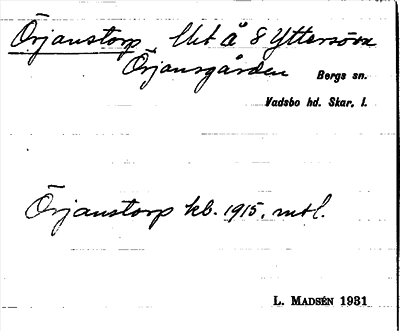 Örjanstorp Ut å 8 Yttersörn
Örjansgården Bergs sn.
Vadsbo hd. Skar. l.
Örjanstorp kb. 1915, mtl.
L. Madsén 1931